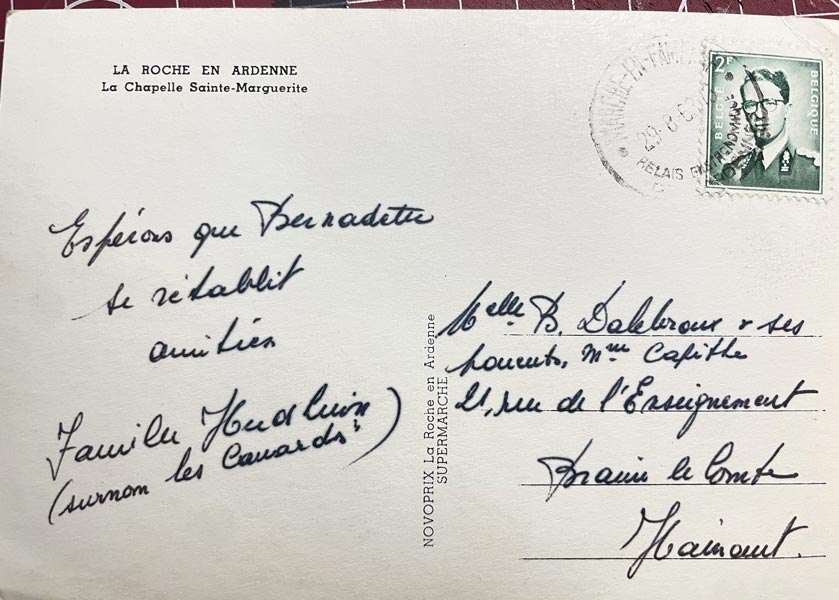 LA ROCHE EN ARDENNE
La Chapelle Sainte-Marguerite
Espérons que Bernadette
se rétablit
amitiés
Famille
(surnom les Canards)
NOVOPRIX La Roche en Ardenne
SUPERMARCHE
MARCHE-EN-FAMENNE
29-8-6
RELAIS
2F
BELGIË
BELGIQUE
Melle B. Dalebroux & ses
parents, Mme
21, rue de l'Enseignement
Braine le Comte
Hainaut.